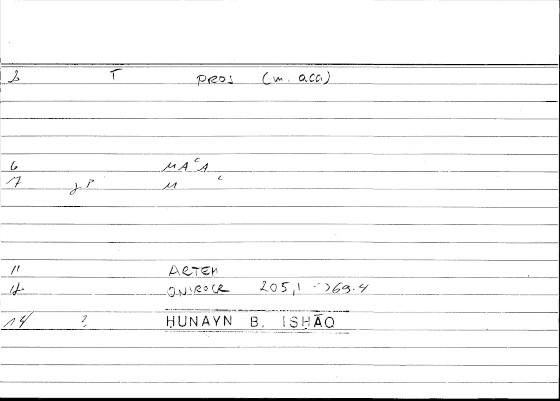 3 T PROS (m. acc)
6 MAʿA
7 M ʿ
11 ARTEM
12 ONIROCR 205,1 - 369.4
14 ? HUNAYN B. ISHĀQ